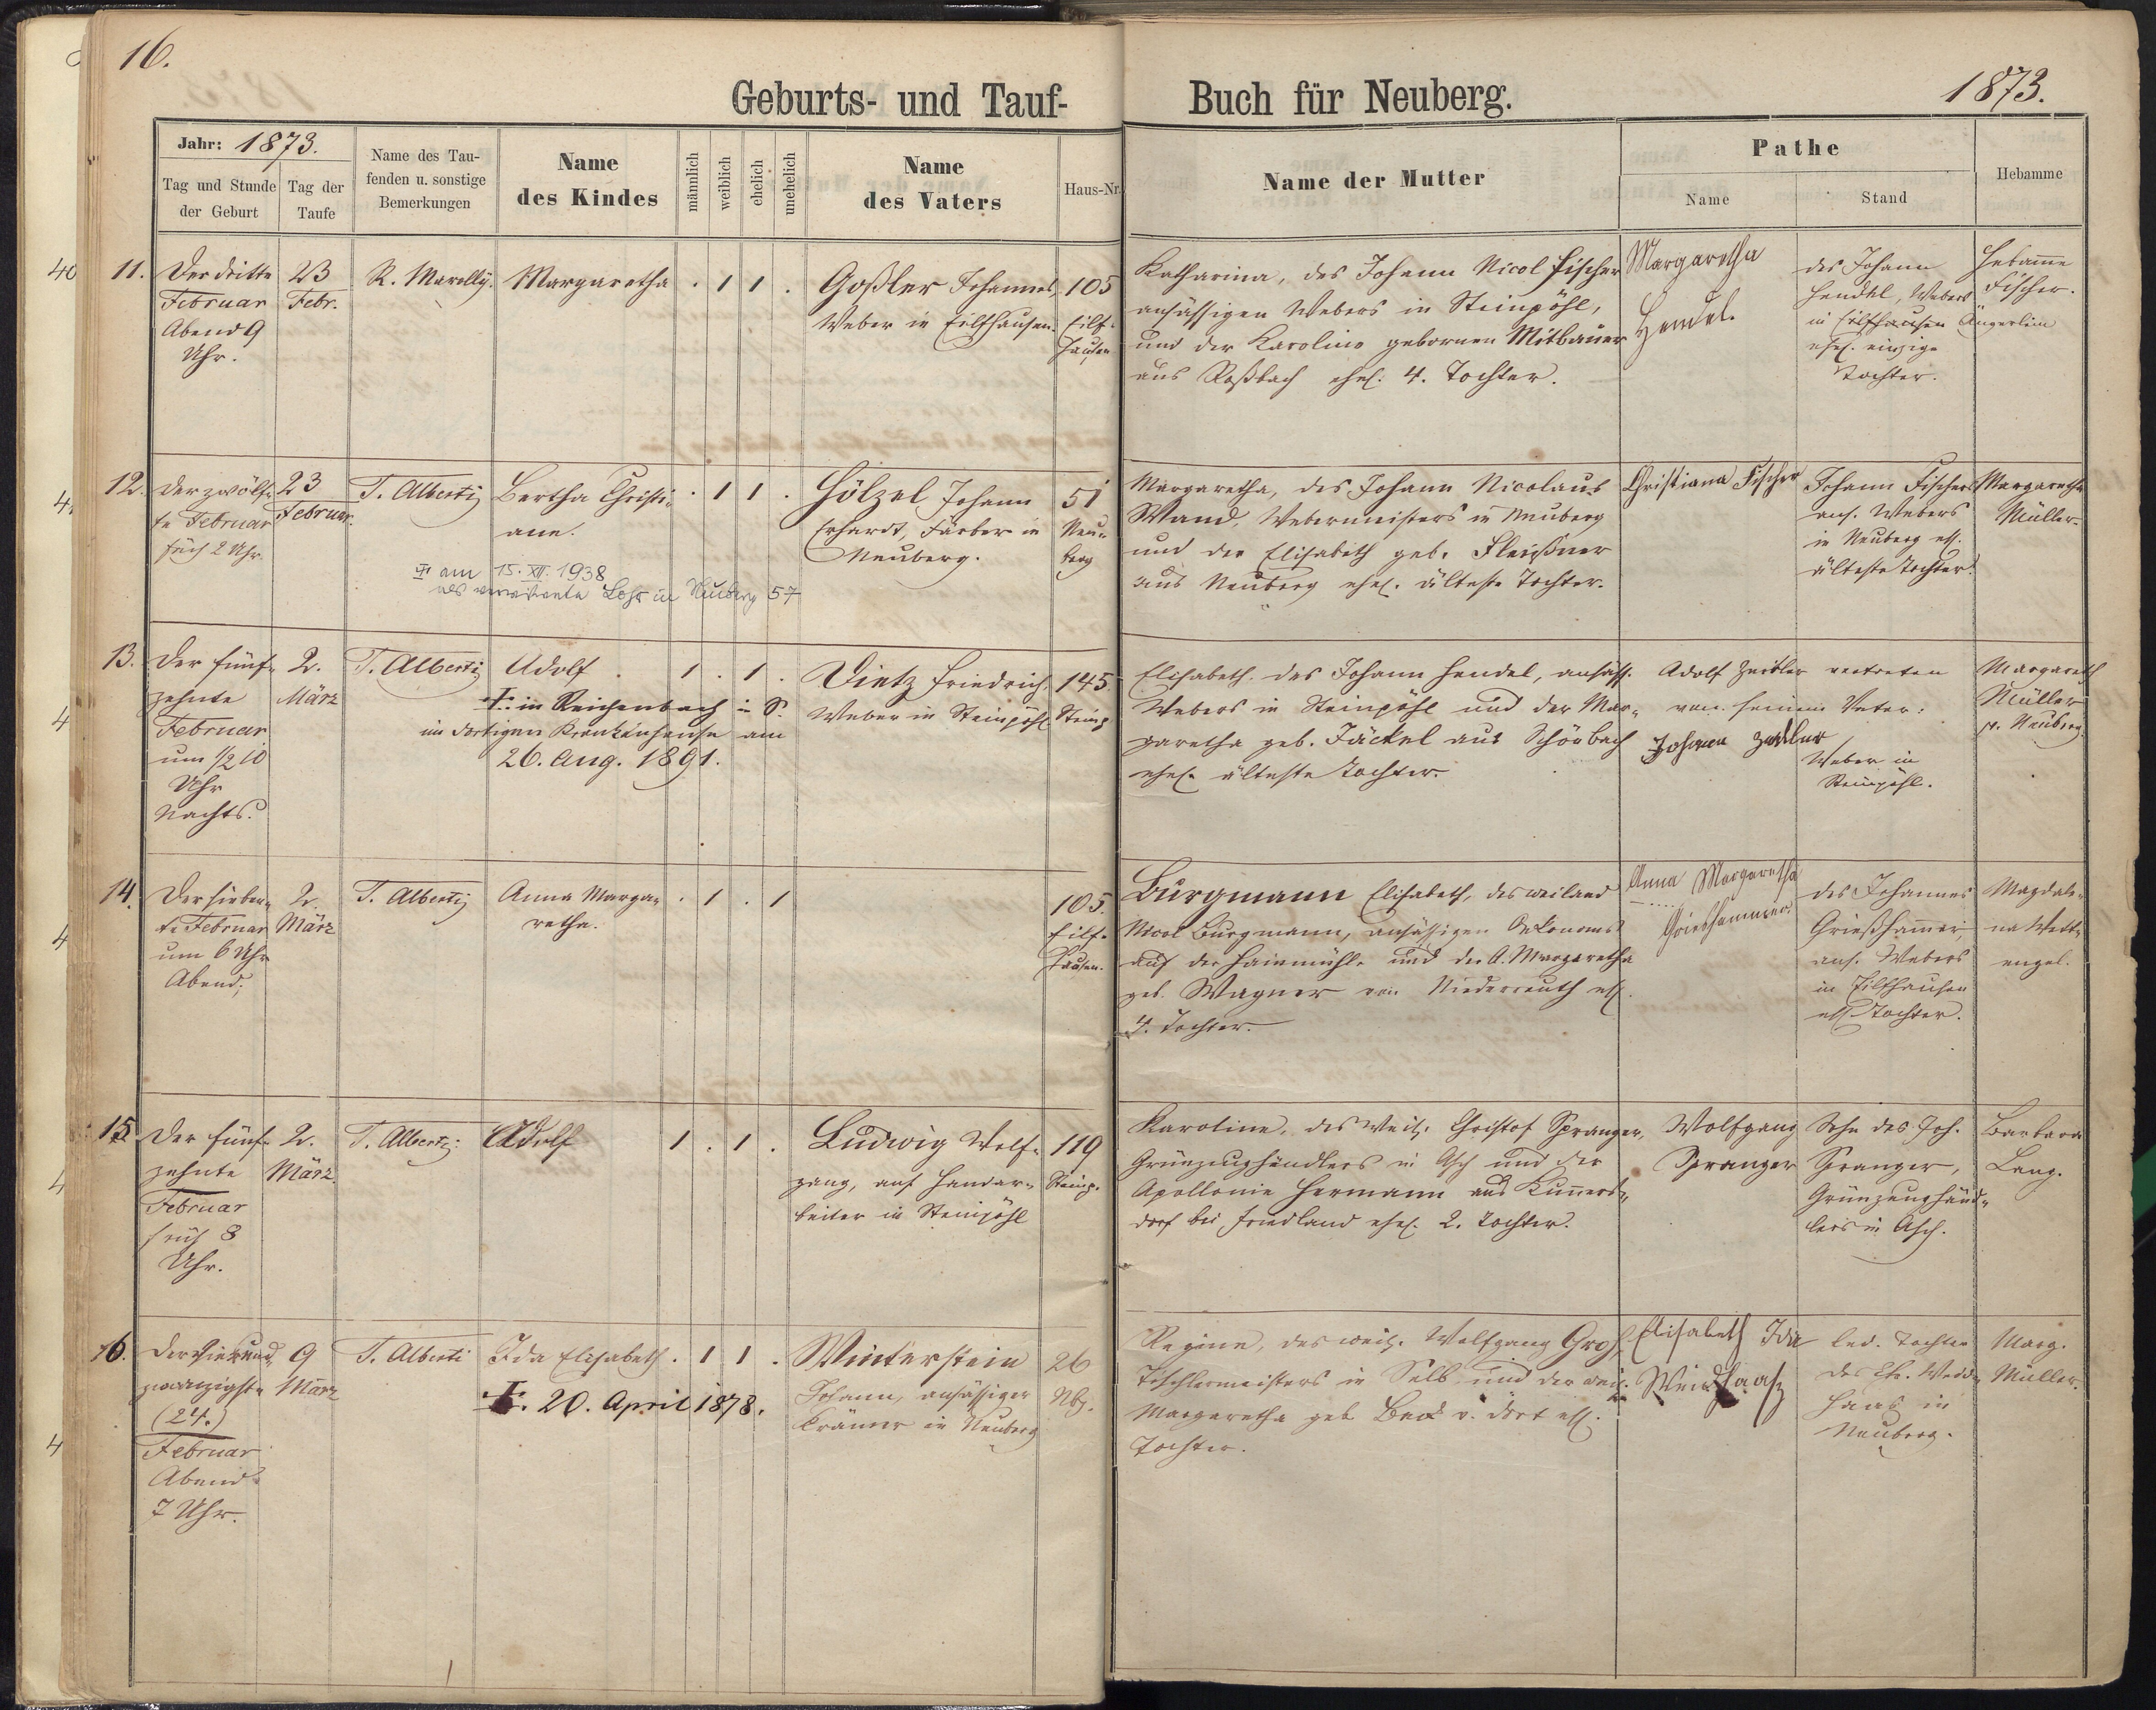 16.
1873.
Geburts- und Tauf-
Buch für Neuberg.
Jahr: 1873.
Tag und Stunde
der Geburt
Tag der
Taufe
Name des Tau-
fenden u. sonstige
Bemerkungen
Name
des Kindes
männlich
weiblich
ehelich
unehelich
Name
des Vaters
Haus-Nr.
Name der Mutter
Pathe
Name
Stand
Hebamme
11.
Der dritte
Februar
Abend 9
Uhr.
23
Febr.
R. Marelly.
Margaretha
. 1 1 .
Goßler Johannes,
Weber in Eilfhausen.
105
Eilf-
hausen
Katharina, des Johann Nicol Fischer
ansässigen Webers in Steinpöhl,
und der Karoline gebornen Mitbauer
aus Roßbach ehel. 4. Tochter.
Margaretha
Hendel.
des Johann
Hendel, Webers
in Eilfhausen
ehel. einzige
Tochter.
Hebame
Fischer.
12.
Der zwölf-
te Februar
früh 2 Uhr
23
Februar.
T. Alberti
Bertha Christi-
ane.
. 1 1 .
Hölzel Johann
Erhardt, Färber in
Neuberg.
51
Neu-
berg
✝ am 15. XII. 1938
als verwitwete Lohr in Neuberg 57
Margaretha, des Johann Nicolaus
Wand, Webermeisters in Neuberg
und der Elisabeth geb. Fleißner
aus Neuberg ehel. älteste Tochter.
Christiana Fischer
Johann Fischers
ans. Webers
in Neuberg ehl.
älteste Tochter.
Margaretha
Müller.
13.
Der fünf-
zehnte
Februar
um 1/2 10
Uhr
Nachts.
2.
März
T. Alberti
Adolf
1 . 1 .
✝ in Reichenbach in S.
im dortigen Krankenhause am
26. Aug. 1891.
Dietz Friedrich,
Weber in Steinpöhl
145
Steinp
Elisabeth, des Johann Hendel, ansäss.
Webers in Steinpöhl und der Mar-
garetha geb. Jäckel aus Schönbach
ehel. älteste Tochter.
Adolf Zeidler vertreten
von seinem Vater:
Johann Zeidler
Weber in
Steinpöhl.
Margareth
Müller
v. Neuberg
14.
Der sieben-
te Februar
um 6 Uhr
Abend;
2.
März
T. Alberti
Anna Marga-
retha.
. 1 . 1
105.
Eilf-
hausen.
Burgmann Elisabeth, des weiland
Nicol Burgmann, ansässigen Oekonoms
auf der Hainmühle und der A. Margaretha
geb. Wagner von Niederreuth ehl.
4. Tochter.
Anna Margaretha
Grieshammer
des Johannes
Grießhamer,
ans. Webers
in Eilfhausen
ehl. Tochter.
Magdale-
na Wett-
engel.
15.
Der fünf-
zehnte
Februar
früh 8
Uhr.
2.
März
T. Alberti
Adolf
1 . 1 .
Ludwig Wolf-
gang, auf Handar-
beiter in Steinpöhl
119
Steinp.
Karoline, des weil. Christof Spranger,
Grünzeughändlers in Asch und der
Apollonie Hermann aus Kuners-
dorf bei Friedland ehel. 2. Tochter.
Wolfgang
Spranger
Sohn des Joh.
Spranger,
Grünzeughänd-
lers in Asch.
Barbara
Lang.
16.
Der vierund
zwanzigste
(24.)
Februar
Abend
7 Uhr.
9
März
T. Alberti
Ida Elisabeth
. 1 1 .
✝. 20. April 1878.
Winterstein
Johann, ansässiger
Krämer in Neuberg
26
Nbg.
Regine, des weil. Wolfgang Groß,
Tischlermeisters in Selb und der weil.
Margaretha geb. Beck v. dort ehl.
Tochter.
Elisabeth Ida
Weidhaas
led. Tochter
des Ch. Weid-
haas in
Neuberg.
Marg.
Müller.